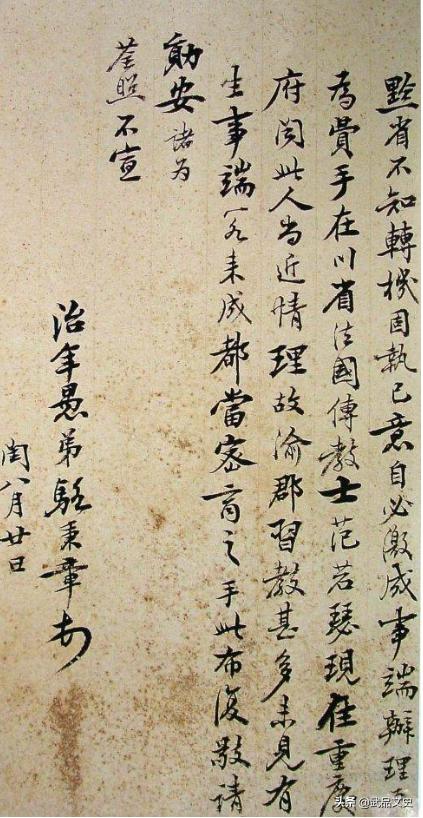 黔省不知轉機固執己意自必激成事端辦理
為費手在川省法國傳教士范若瑟現在重慶
府聞此人尚近情理故渝郡習教甚多未見有
生事端來成都當密商之手此布復敬請
勛安諸为
荃照不宣
治年愚弟駱秉章
閏八月廿日
头条 @文史